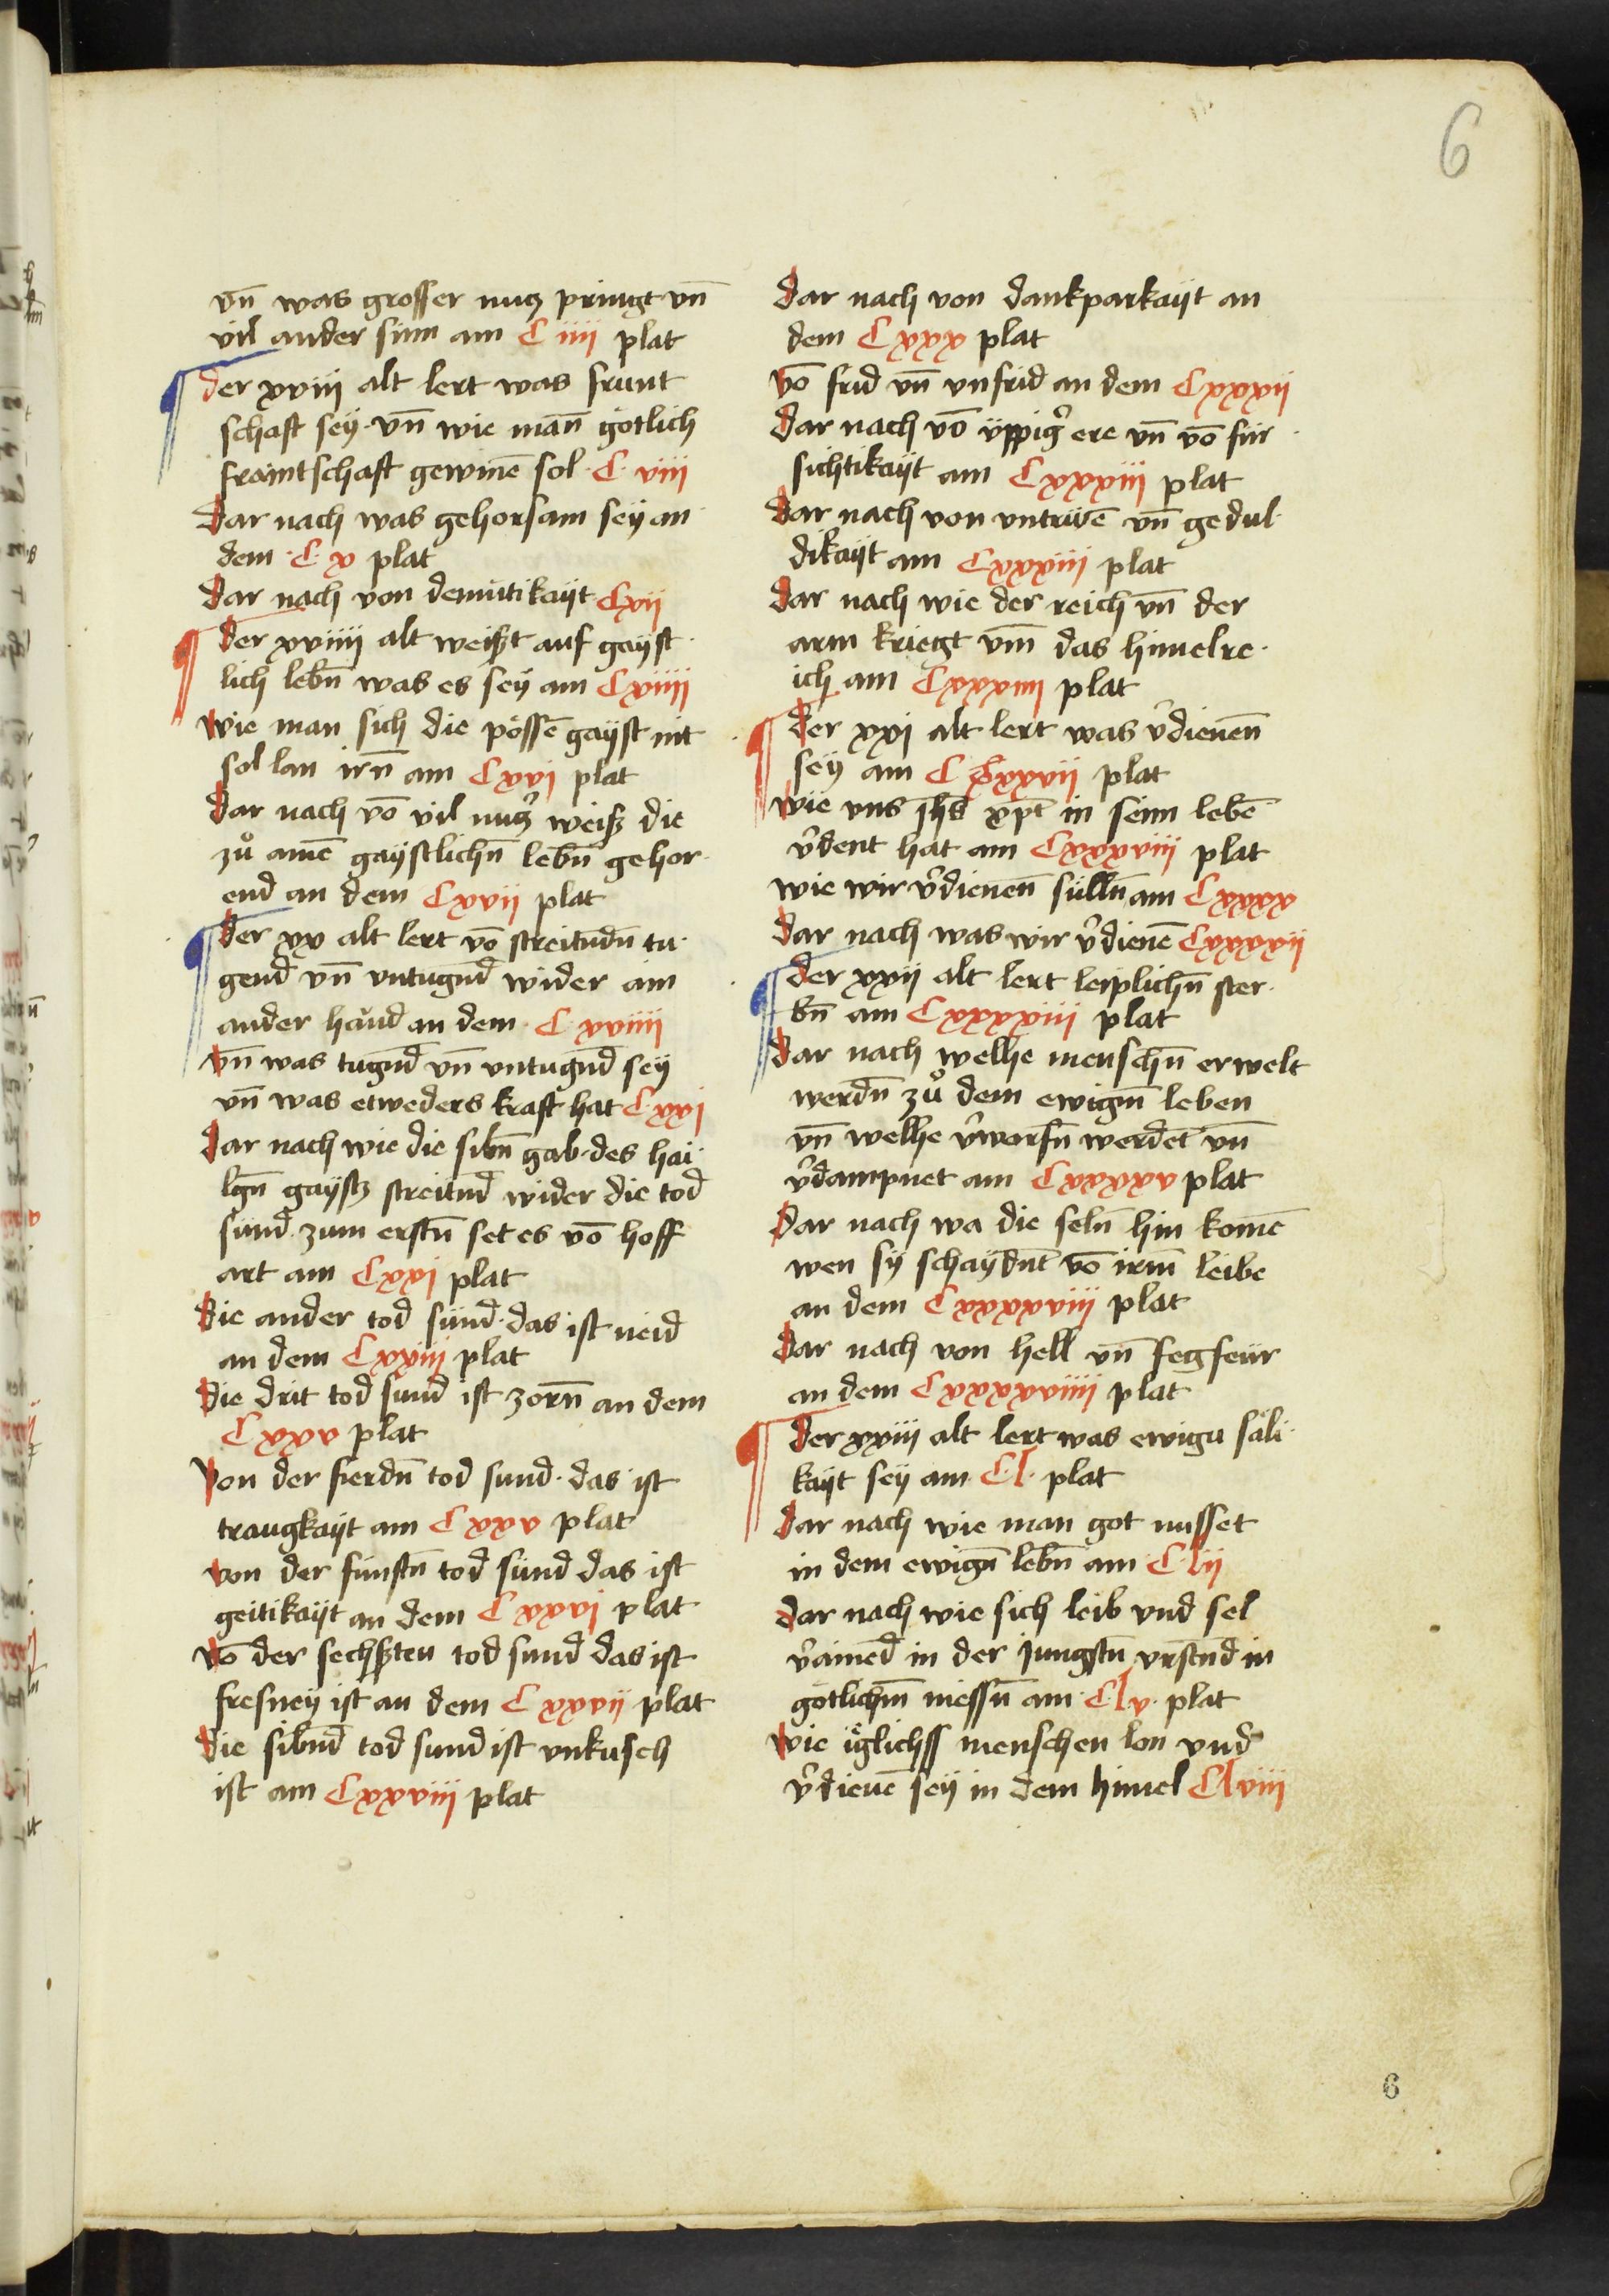 6
vn̄ was grosser nucz pringt vn̄
vil ander sinn am C iiii plat
der xviii alt lert was frunt
schaft sey · vn̄ wie man̄ götlich
fraintschaft gewinē sol · C · viii
dar nach was gehorsam sey an
dem · C · x plat
dar nach von demütikayt Cxii
der xviiii alt weißt auf gayst
lich lebn̄ was es sey am Cxiiii
wie man sich die pössē gayst nit
sol lan irn̄ am Cxvi plat
dar nach vō vil nucz̉ weiß die
zů ainē gaystlichn̄ lebn̄ gehor
end an dem Cxvii plat
der xx alt lert vō streitudn̄ tu
gend vn̄ vntugnd̄ wider ain
ander hand an dem · C xviiii
vn̄ was tugnd̄ vn̄ vntugnd̄ sey
vn̄ was etweders kraft hat C xxi
dar nach wie die sibn̄ gab · des hai
lgn̄ gaystz streitnd̄ wider die tod
sünd · zum erstn̄ set es vō hoff
art am Cxxi plat
die ander tod sünd · das ist neid
an dem Cxxiii plat
die drit tod sund ist zorn̄ an dem
Cxxv plat
von der fierdn̄ tod sund · das ist
traugkayt am Cxxv plat
von der fünftn̄ tod sünd das ist
geitikayt an dem Cxxvi plat
vō der sechßten tod sund das ist
fresney ist an dem C xxvii plat
die sibnd̄ tod sund ist vnkusch
ist am Cxxviii plat
dar nach von dankparkayt an
dem Cxxx plat
vō frid vn̄ vnfrid an dem Cxxxii
dar nach vō üppig̉ ere vn̄ vō für
sichtikayt am Cxxxiii plat
dar nach von vntrüē vn̄ gedul
dikayt am Cxxxiii plat
dar nach wie der reich vn̄ der
arm kriegt vm̄ das himelre
ich am Cxxxiiii plat
der xxi alt lert was v̉dienen̄
sey am C Cxxxvii plat
wie vns ihs xpt̄ in seim lebē
v̉dent hat am Cxxxviii plat
wie wir v̉dienen̄ sülln̄ am Cxxxx
dar nach was wir v̉dienē Cxxxxii
der xxii alt lert leiplichn̄ ster
bn̄ am Cxxxxiii plat
dar nach welhe menschn̄ erwelt
werdn̄ zů dem ewigm̄ leben
vn̄ welhe v̉worfn̄ werdet vn̄
v̉dampnet am Cxxxxv plat
dar nach wa die seln̄ hin komē
wen sy schaydnt̄ vō irm̄ leibe
an dem Cxxxxviii plat
dar nach von hell vn̄ fegfeür
an dem Cxxxxviiii plat
der xxiii alt lert was ewigu säli
kayt sey am · C·l · plat
dar nach wie man got nusset
in dem ewign̄ lebn̄ am · C·lii
dar nach wie sich leib vnd sel
v̉ained̄ in der jungstn̄ vrstnd̄ in
götlichm̄ niessn̄ am · C·lv · plat
wie iͤglichß menschen lon vnd
v̉dienē sey in dem himel Clviii
6